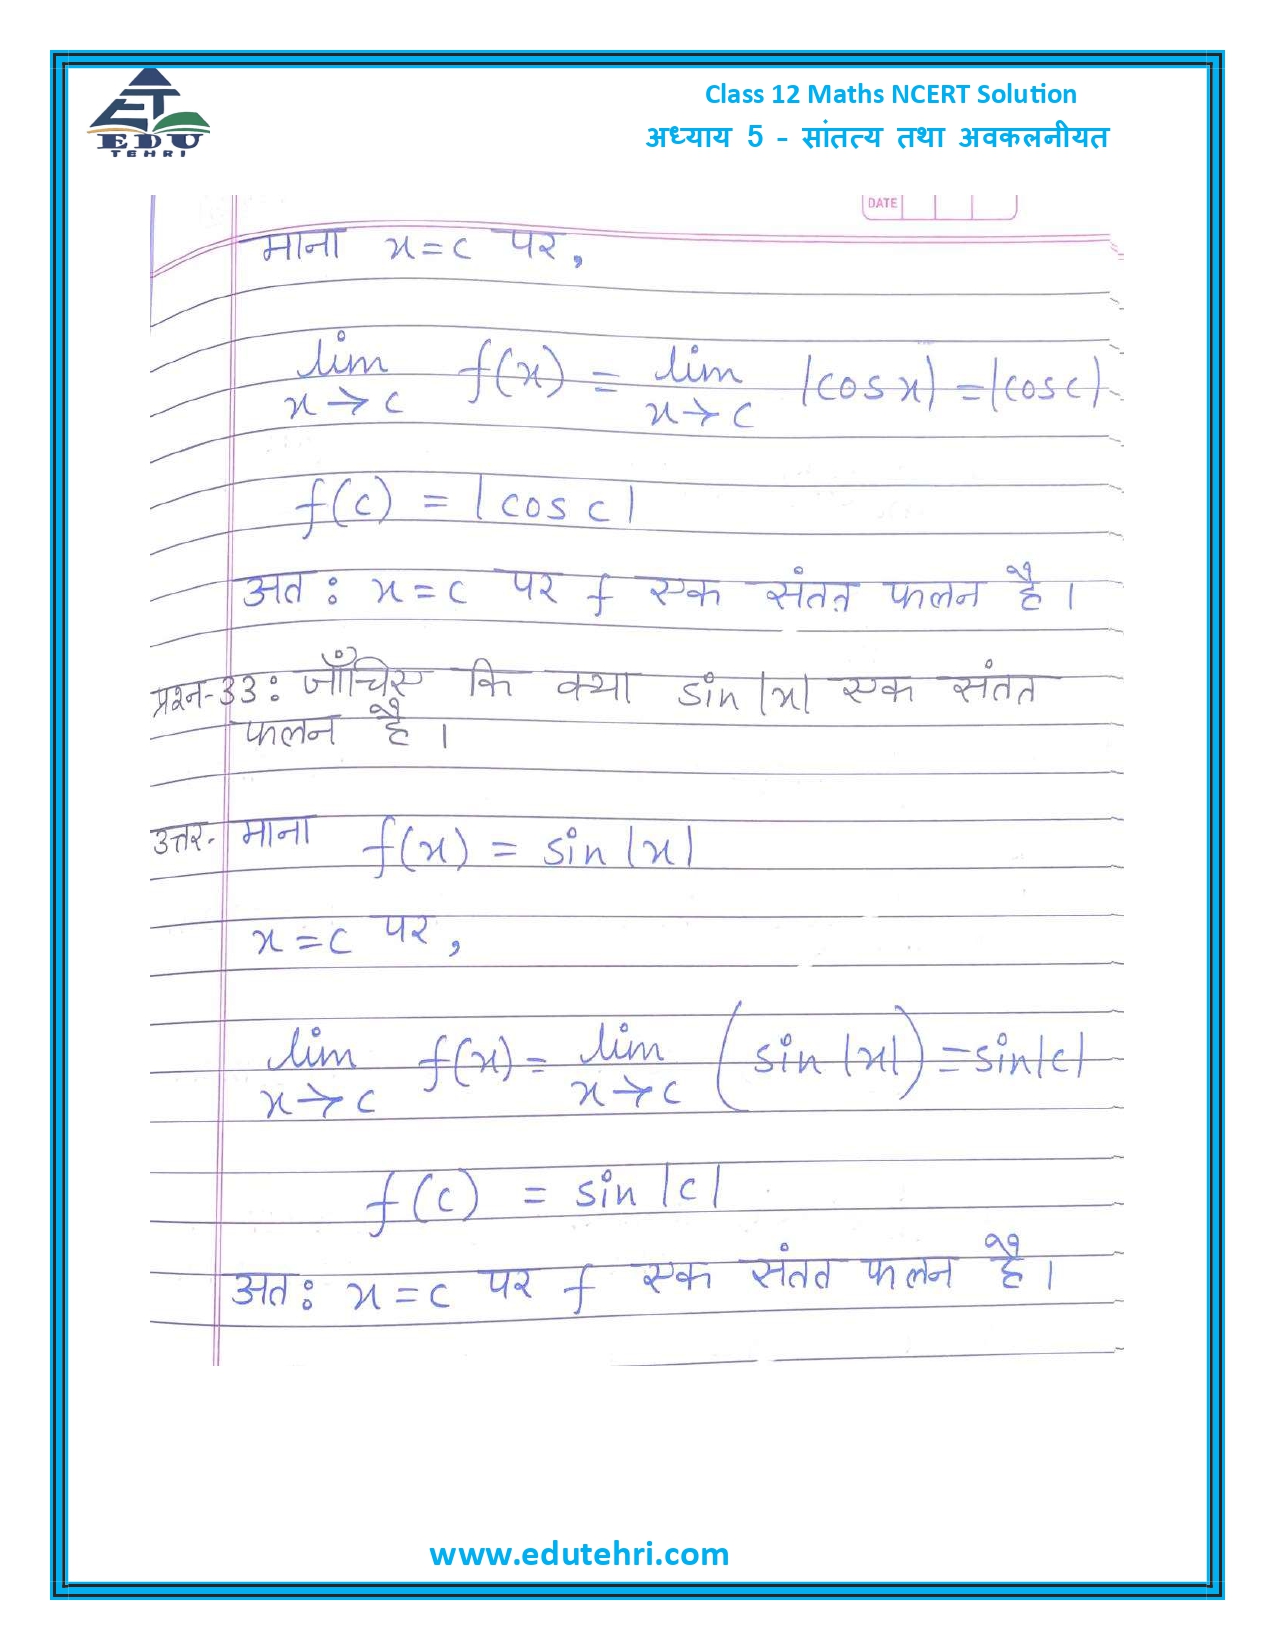 EDU
TEHRI
Class 12 Maths NCERT Solution
अध्याय 5 - सांतत्य तथा अवकलनीयत
DATE
माना x=c पर,
lim f(x) = lim |cos x| = |cos c|
x→c x→c
f(c) = |cos c|
अतः x=c पर f एक संतत फलन है।
प्रश्न-33: जाँचिए कि क्या sin|x| एक संतत
फलन है।
उत्तर- माना f(x) = sin|x|
x=c पर,
lim f(x) = lim (sin|x|) = sin|c|
x→c x→c
f(c) = sin|c|
अतः x=c पर f एक संतत फलन है।
www.edutehri.com